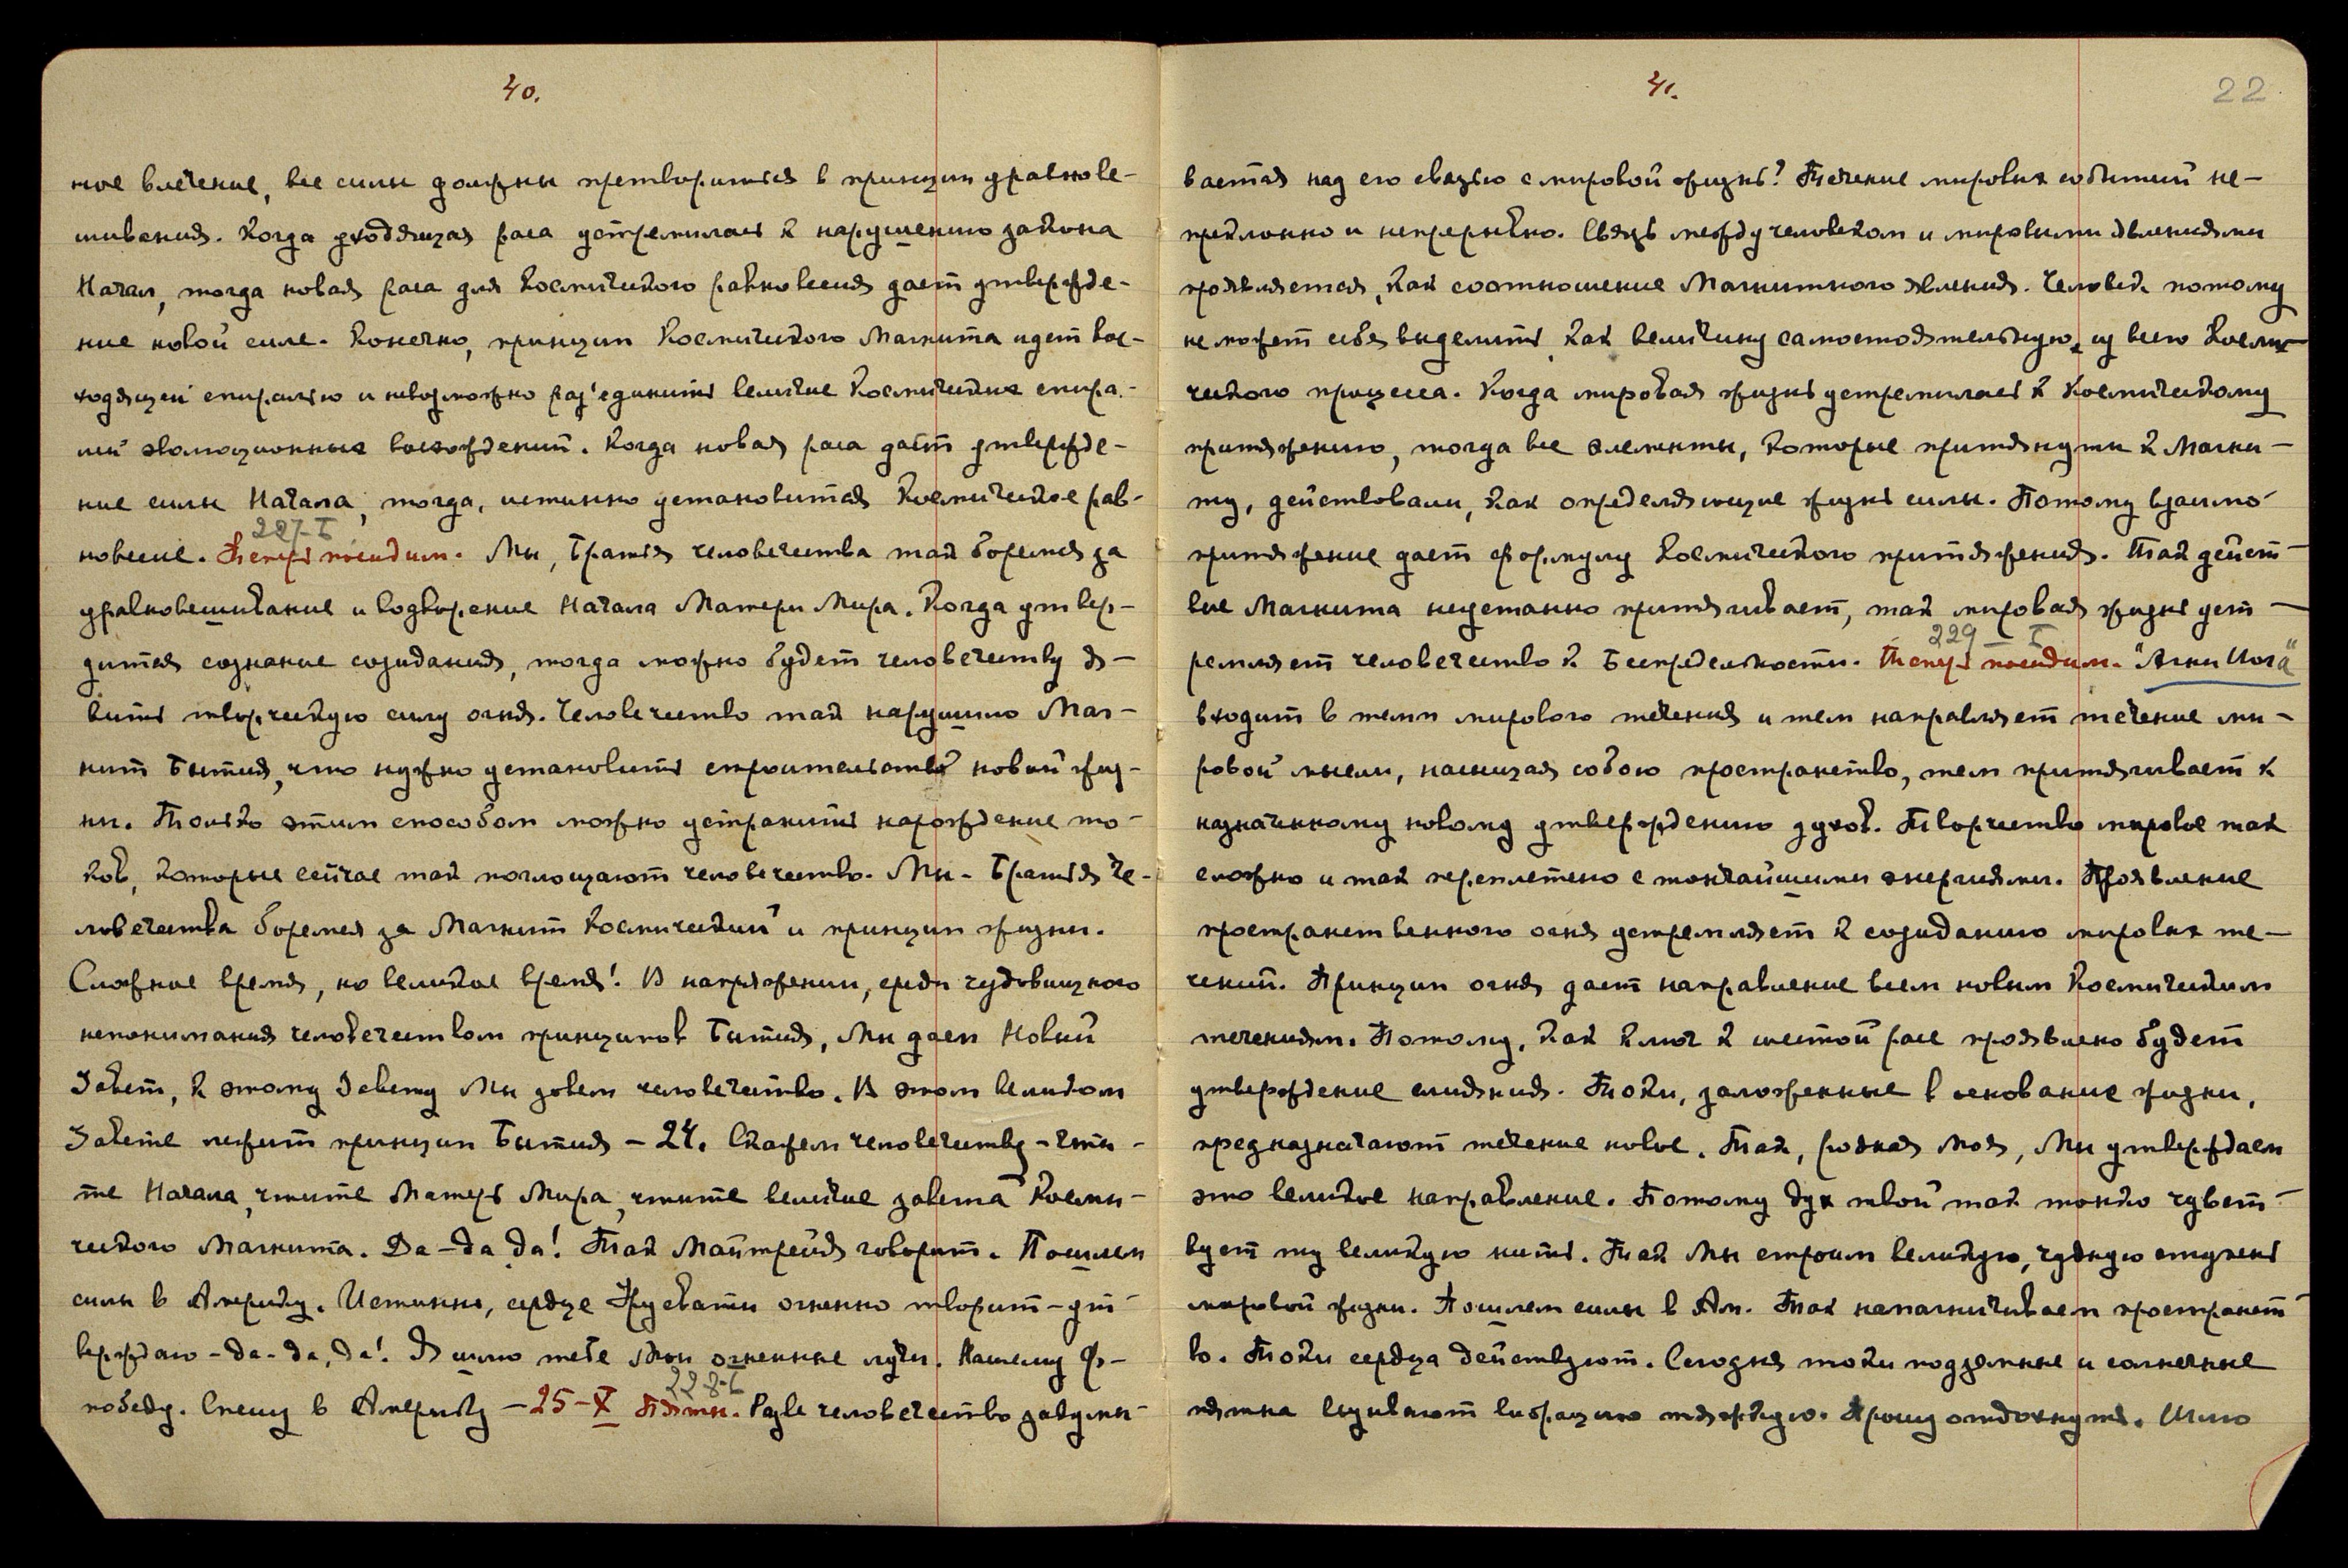 40.
ное влечение, все силы должны претвориться в принцип уравнове-
шивания. Когда уходящая раса устремилась к нарушению закона
Начал, тогда новая раса для Космического равновесия дает утвержде-
ние новой силе. Конечно, принцип Космического Магнита идет вос-
ходящей спиралью и невозможно раз'единить величие Космических спира-
лей эволюционных восхождений. Когда новая раса даст утвержде-
ние силы Начала, тогда, истинно установится Космическое рав-
227-I
новесие. Теперь посидим. Мы, Братья человечества так боремся за
уравновешивание и водворение Начала Матери Мира. Когда утвер-
дится сознание созидания, тогда можно будет человечеству я-
вить творческую силу огня. Человечество так нарушило Маг-
нит Бытия, что нужно установить строительство новой жиз-
ни. Только этим способом можно устранить нарождение то-
ков, которые сейчас так поглощают человечество. Мы - Братья че-
ловечества боремся за Магнит Космический и принцип жизни.
Сложное время, но великое время! В напряжении, среди чудовищного
непонимания человечеством принципов Бытия, Мы даем Новый
Завет, к этому Завету Мы зовем человечество. В этом великом
Завете лежит принцип Бытия - 24. Скажем человечеству - чти-
те Начала, чтите Матерь Мира, чтите величие завета Косми-
ческого Магнита. Да - да да! Так Майтрейя говорит. Пошлем
силы в Америку. Истинно, сердце Урусвати огненно творит - ут-
верждаю - да - да, да! Я шлю тебе Мои огненные лучи. Нашему Ф-
228-I
победу. Спешу в Америку - 25-X Пяты. Разве человечество задумы-
41.
22
вается над его связью с мировой жизнь? Течение мировых событий не-
преклонно и непрерывно. Связь между человеком и мировыми явлениями
проявляется, как соотношение Магнитного явления. Человек потому
не может себя выделить, как величину самостоятельную, из всего Косми-
ческого процесса. Когда мировая жизнь устремилась к Космическому
притяжению, тогда все элементы, которые притянуты к Магни-
ту, действовали, как определяющие жизнь силы. Потому взаимо-
притяжение дает формулу Космического притяжения. Так дейст-
вие Магнита неустанно притягивает, так мировая жизнь уст-
229-I
ремляет человечество к Беспредельности. Теперь посидим. "Агни Йога"
входит в темп мирового течения и тем направляет течение ми-
ровой мысли, насыщая собою пространство, тем притягивает к
назначенному новому утверждению духов. Творчество мировое так
сложно и так переплетено с тончайшими энергиями. Проявление
пространственного огня устремляет к созиданию мировых те-
чений. Принцип огня дает направление всем новым Космическим
течениям. Потому, как ключ к шестой расе проявлено будет
утверждение слияния. Токи, заложенные в основание жизни,
предназначают течение новое. Так, родная моя, Мы утверждаем
это великое направление. Потому дух твой так тонко чувст-
вует ту великую нить. Так Мы строим великую, чудную ступень
мировой жизни. Пошлем силы в Ам. Так намагничиваем пространст-
во. Токи сердца действуют. Сегодня токи подземные и солнечные
пятна вызывают вибрацию тяжкую. Прошу отдохнуть. Шлю